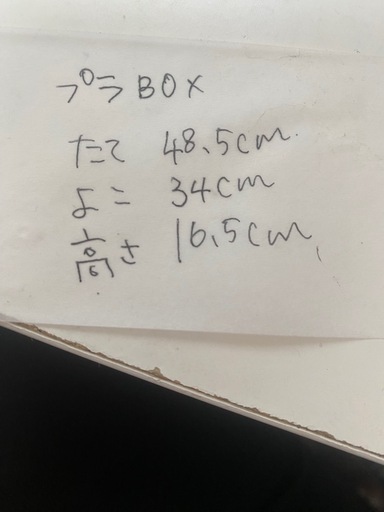 プラBOX
たて 48.5cm
よこ 34cm
高さ 16.5cm